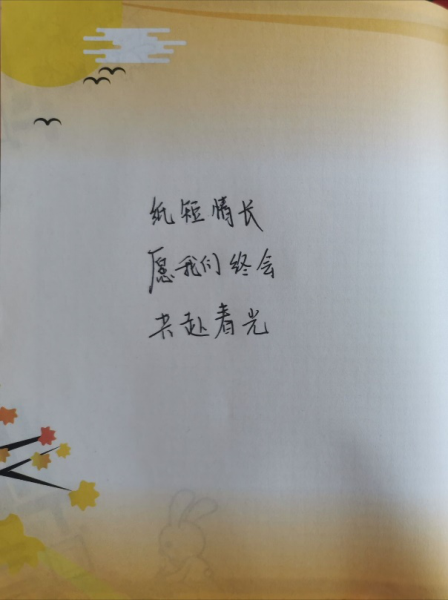 纸短情长
愿我们终会
共赴春光